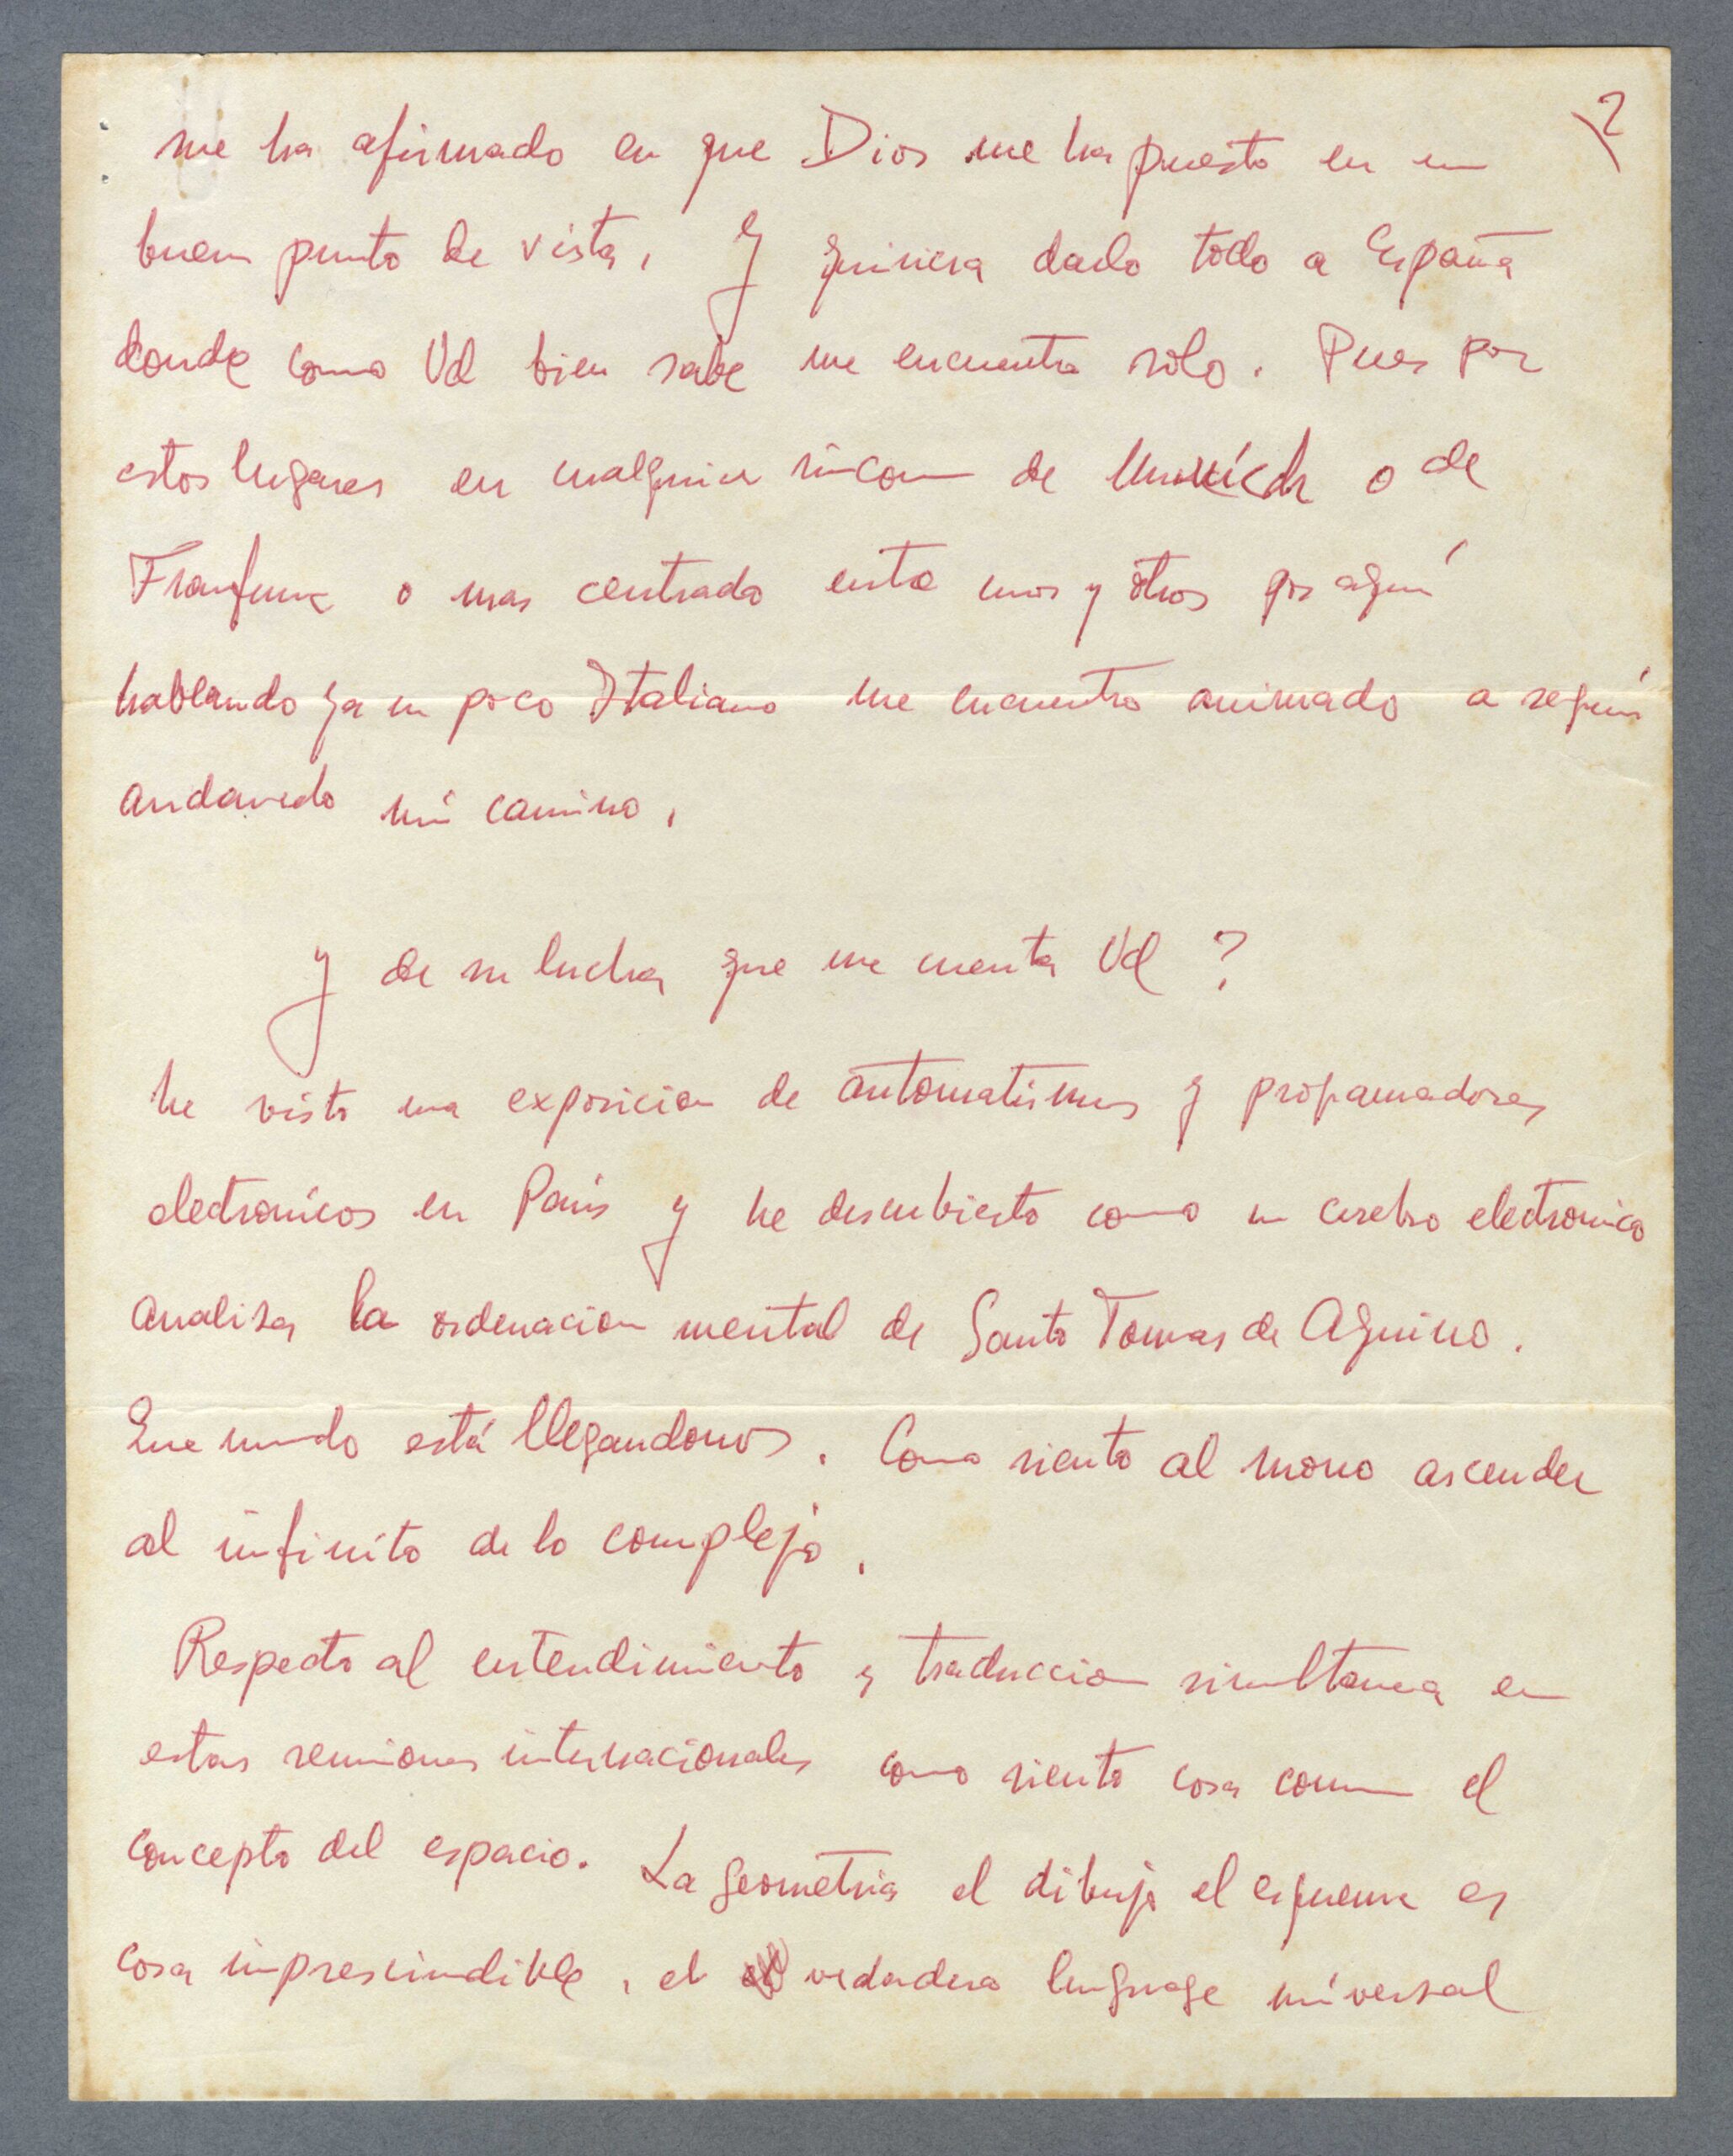 2
me ha afirmado en que Dios me ha puesto en un
buen punto de vista, y quisiera darlo todo a España
donde como Vd bien sabe me encuentro solo. Pues por
estos lugares en cualquier rincon de Munich o de
o mas centrado entre unos y otros por aquí
hablando ya un poco Italiano me encuentro animado a seguir
andando mi camino,
y de su lucha que me cuenta Vd ?
he visto una exposicion de automatismos y programadores
electronicos en París y he descubierto como un cerebro electronico
analiza la ordenacion mental de Santo Tomas de Aquino.
Que mundo está llegandonos. Como siento al mono ascender
al infinito de lo complejo,
Respecto al entendimiento y traduccion simultanea en
estas reuniones internacionales como siento cosa comun el
concepto del espacio. La geometria el dibujo el esquema es
cosa imprescindible, el verdadero lenguage universal